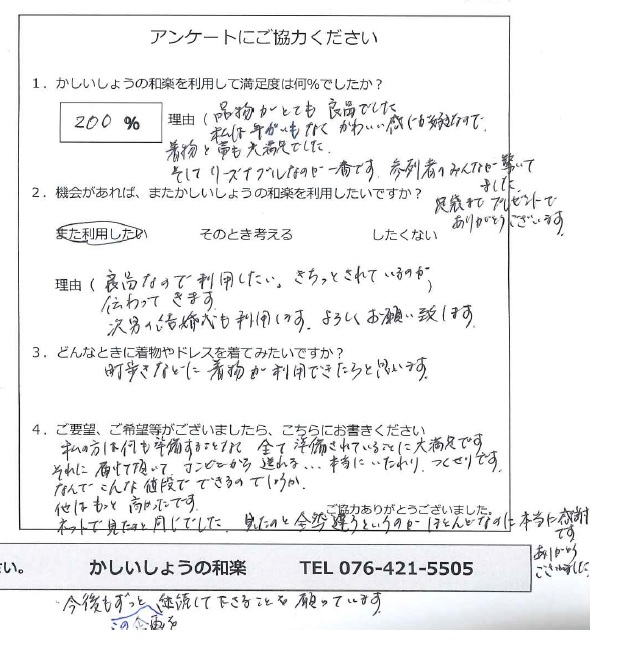 アンケートにご協力ください
1．かしいしょうの和楽を利用して満足度は何％でしたか？
200 %
理由（品物がとても良品でした
私は年がいもなくかわいい感じが好きなので、
着物と帯も大満足でした。
そしてリーズナブルなのが一番です。参列者のみんなが驚いて
ました。
足袋までプレゼントで
ありがとうございます。
2．機会があれば、またかしいしょうの和楽を利用したいですか？
また利用したい そのとき考える したくない
理由（良品なので利用したい。きちっとされているのが）
伝わってきます
次男の結婚式も利用します。よろしくお願い致します。
3．どんなときに着物やドレスを着てみたいですか？
町歩きなどに着物が利用できたらと思います。
4．ご要望、ご希望等がございましたら、こちらにお書きください
私の方は何も準備することなく全て準備されていることに大満足です
それに届けて頂いてコンビニから送れる...本当にいたれり、つくせりです。
なんでこんな値段でできるのでしょうか。
他はもっと高かったです。
ご協力ありがとうございました。
ネットで見たのと同じでした。見たのと全然違うというのがほとんどなのに本当に感謝
です
ありがとう
ございました
さい。 かしいしょうの和楽 TEL 076-421-5505
今後もずっと継続して下さることを願っています。
この企画を